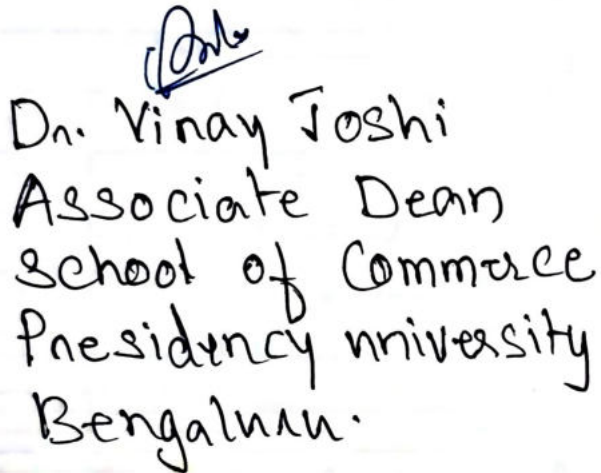 Dr. Vinay Joshi
Associate Dean
School of Commerce
Presidency University
Bengaluru.